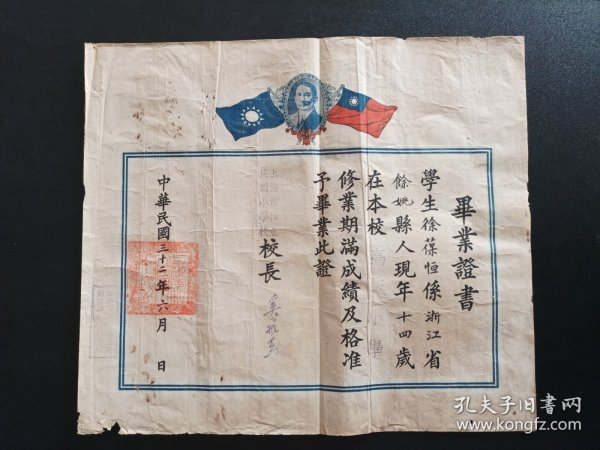 畢業證書
學生徐葆恒係浙江省
餘姚縣人現年十四歲
在本校
修業期滿成績及格准
予畢業此證
校長
中華民國三十二年六月 日
孔夫子旧书网
www.kongfz.com